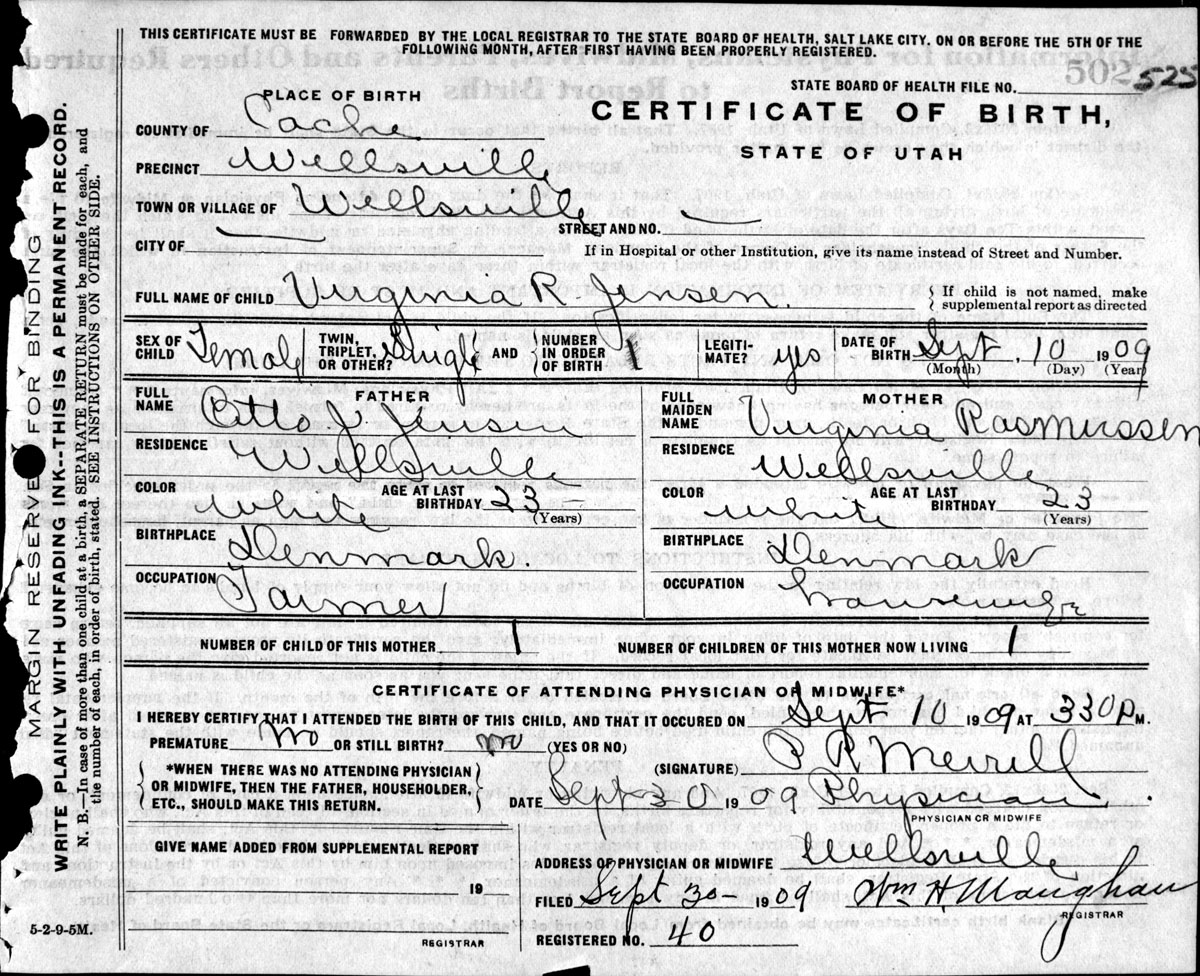 THIS CERTIFICATE MUST BE FORWARDED BY THE LOCAL REGISTRAR TO THE STATE BOARD OF HEALTH, SALT LAKE CITY, ON OR BEFORE THE 5TH OF THE
FOLLOWING MONTH, AFTER FIRST HAVING BEEN PROPERLY REGISTERED.
502 525
STATE BOARD OF HEALTH FILE NO.
PLACE OF BIRTH
CERTIFICATE OF BIRTH,
STATE OF UTAH
COUNTY OF Cache
PRECINCT Wellsville
TOWN OR VILLAGE OF Wellsville STREET AND NO. —
CITY OF —
If in Hospital or other Institution, give its name instead of Street and Number.
FULL NAME OF CHILD Virginia R. Jensen. { If child is not named, make
supplemental report as directed
SEX OF CHILD Female TWIN, TRIPLET, OR OTHER? Single AND { NUMBER IN ORDER OF BIRTH 1 LEGITI-MATE? yes DATE OF BIRTH Sept, 10 1909
(Month) (Day) (Year)
FATHER
FULL NAME Otto J. Jensen
RESIDENCE Wellsville
COLOR White AGE AT LAST BIRTHDAY 23 –
(Years)
BIRTHPLACE Denmark.
OCCUPATION Farmer
MOTHER
FULL MAIDEN NAME Virginia Rasmussen
RESIDENCE Wellsville
COLOR White AGE AT LAST BIRTHDAY 23
(Years)
BIRTHPLACE Denmark
OCCUPATION Housewife
NUMBER OF CHILD OF THIS MOTHER 1 NUMBER OF CHILDREN OF THIS MOTHER NOW LIVING 1
CERTIFICATE OF ATTENDING PHYSICIAN OR MIDWIFE*
I HEREBY CERTIFY THAT I ATTENDED THE BIRTH OF THIS CHILD, AND THAT IT OCCURED ON Sept 10 1909 AT 330 P M.
PREMATURE No OR STILL BIRTH? no (YES OR NO)
{ *WHEN THERE WAS NO ATTENDING PHYSICIAN
OR MIDWIFE, THEN THE FATHER, HOUSEHOLDER,
ETC., SHOULD MAKE THIS RETURN. }
(SIGNATURE) P R Merrill
DATE Sept 30 1909 Physician.
PHYSICIAN OR MIDWIFE
GIVE NAME ADDED FROM SUPPLEMENTAL REPORT
19
REGISTRAR
ADDRESS OF PHYSICIAN OR MIDWIFE Wellsville
FILED Sept 30 1909 Wm H Maughan
REGISTRAR
REGISTERED NO. 40
5-2-9-5M.
MARGIN RESERVED FOR BINDING
WRITE PLAINLY WITH UNFADING INK--THIS IS A PERMANENT RECORD.
N. B.—In case of more than one child at a birth, a SEPARATE RETURN must be made for each, and
the number of each, in order of birth, stated. SEE INSTRUCTIONS ON OTHER SIDE.